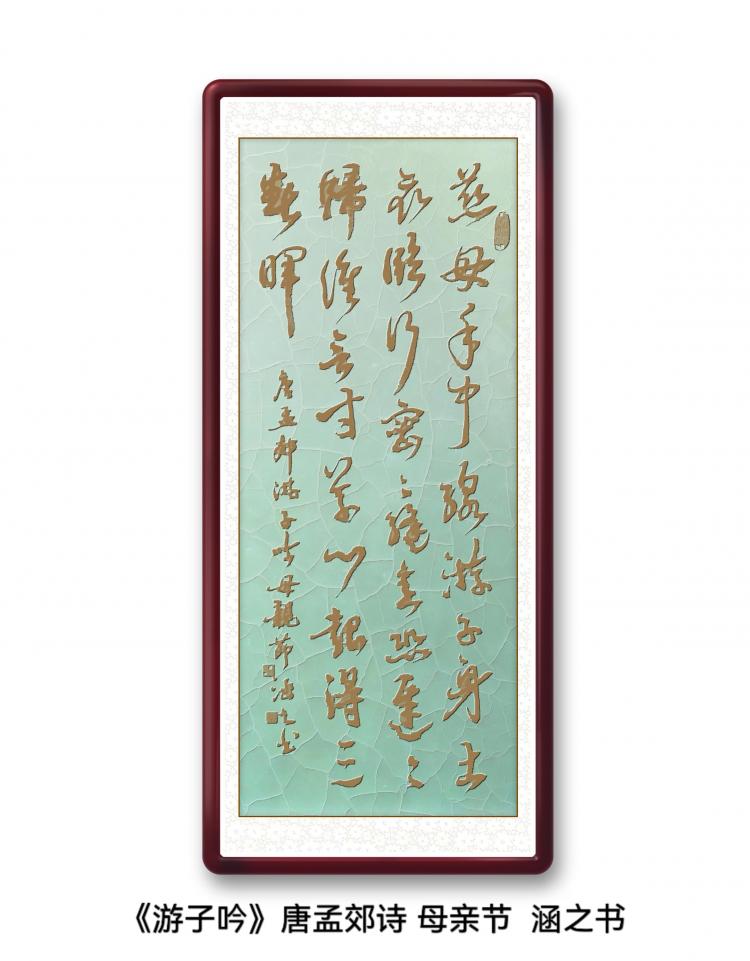 慈母手中線游子身上
衣臨行密々縫意恐遲々
歸誰言寸草心報得三
春暉
唐孟郊游子吟母親節涵之书
《游子吟》唐孟郊诗 母亲节 涵之书